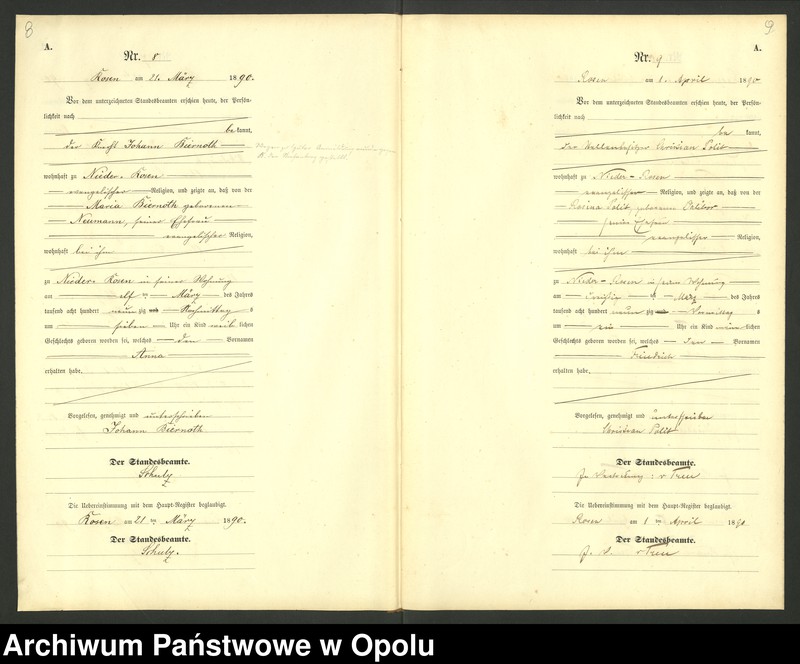 8
A.
Nr. 8
Rosen am 21. März 1890.
Vor dem unterzeichneten Standesbeamten erschien heute, der Persön-
lichkeit nach
bekannt,
der Knecht Johann Biernoth
wohnhaft zu Nieder-Rosen
evangelischer Religion, und zeigte an, daß von der
Maria Biernoth geborenen
Neumann, seiner Ehefrau
evangelischer Religion,
wohnhaft bei ihm
zu Nieder-Rosen in seiner Wohnung
am elf ten März des Jahres
tausend acht hundert neunzig Nachmittag s
um sieben Uhr ein Kind weib lichen
Geschlechts geboren worden sei, welches den Vornamen
Anna
erhalten habe.
Vorgelesen, genehmigt und unterschrieben
Johann Biernoth
Der Standesbeamte.
Schulz
Die Uebereinstimmung mit dem Haupt-Register beglaubigt.
Rosen am 21 ten März 1890.
Der Standesbeamte.
Schulz.
9
A.
Nr. 9
Rosen am 1. April 1890
Vor dem unterzeichneten Standesbeamten erschien heute, der Persön-
lichkeit nach
bekannt,
der Christian Polit
wohnhaft zu Nieder-Rosen
evangelischer Religion, und zeigte an, daß von der
Rosina Polit, geborenen
seiner Ehefrau
evangelischer Religion,
wohnhaft bei ihm
zu Nieder-Rosen in seiner Wohnung
am dreißig ten März des Jahres
tausend acht hundert neunzig Vormittag s
um ein Uhr ein Kind männlichen
Geschlechts geboren worden sei, welches den Vornamen
Friedrich
erhalten habe.
Vorgelesen, genehmigt und unterschrieben
Christian Polit
Der Standesbeamte.
In Vertretung:
Die Uebereinstimmung mit dem Haupt-Register beglaubigt.
Rosen am 1 ten April 1890
Der Standesbeamte.
Archiwum Państwowe w Opolu